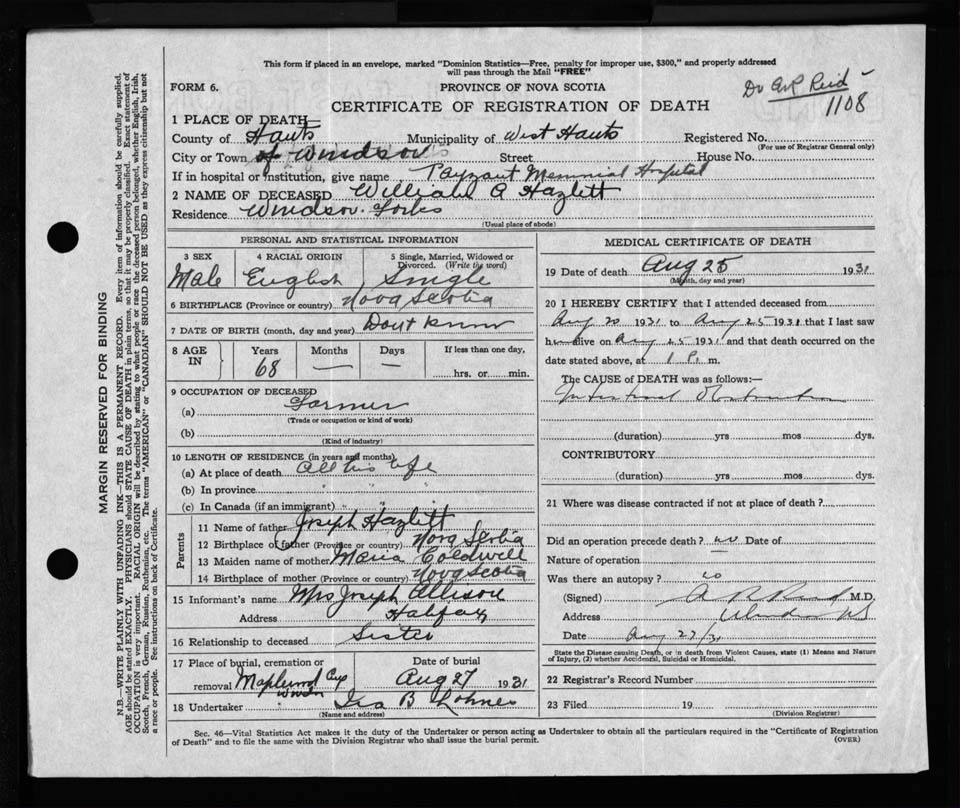 This form if placed in an envelope, marked "Dominion Statistics—Free, penalty for improper use, $300," and properly addressed
will pass through the Mail "FREE"
FORM 6.
PROVINCE OF NOVA SCOTIA
Dr A R Reid
1108
CERTIFICATE OF REGISTRATION OF DEATH
1 PLACE OF DEATH
County of Hants Municipality of West Hants Registered No.
(For use of Registrar General only)
City or Town of Windsor Street House No.
If in hospital or institution, give name Payzant Memorial Hospital
2 NAME OF DECEASED William A Hazlett
Residence Windsor Forks
(Usual place of abode)
PERSONAL AND STATISTICAL INFORMATION
3 SEX 4 RACIAL ORIGIN 5 Single, Married, Widowed or
Divorced. (Write the word)
Male English Single
6 BIRTHPLACE (Province or country) Nova Scotia
7 DATE OF BIRTH (month, day and year) Dont know
8 AGE IN Years Months Days If less than one day,
68 — — hrs. or min.
9 OCCUPATION OF DECEASED
(a) Farmer
(Trade or occupation or kind of work)
(b)
(Kind of industry)
10 LENGTH OF RESIDENCE (in years and months)
(a) At place of death All his life
(b) In province " " "
(c) In Canada (if an immigrant) "
Parents
11 Name of father Joseph Hazlett
12 Birthplace of father (Province or country) Nova Scotia
13 Maiden name of mother Maria Coldwell
14 Birthplace of mother (Province or country) Nova Scotia
15 Informant's name Mrs Joseph Allison
Address Halifax
16 Relationship to deceased Sister
17 Place of burial, cremation or Date of burial
removal Maplewood Cem Windsor Aug 27 1931
18 Undertaker Ira B Lohnes
(Name and address)
MEDICAL CERTIFICATE OF DEATH
19 Date of death Aug 25 1931
(Month, day and year)
20 I HEREBY CERTIFY that I attended deceased from
Aug 20 1931 to Aug 25 1931 that I last saw
him alive on Aug 25 1931 and that death occurred on the
date stated above, at 1 P. m.
The CAUSE of DEATH was as follows:—
Intestinal Obstruction
(duration) yrs mos dys.
CONTRIBUTORY
(duration) yrs mos dys.
21 Where was disease contracted if not at place of death?
Did an operation precede death? no Date of
Nature of operation
Was there an autopsy? no
(Signed) A R Reid M.D.
Address Windsor NS
Date Aug 27/31
State the Disease causing Death, or in death from Violent Causes, state (1) Means and Nature
of Injury, (2) whether Accidental, Suicidal or Homicidal.
22 Registrar's Record Number
23 Filed 19
(Division Registrar)
Sec. 46—Vital Statistics Act makes it the duty of the Undertaker or person acting as Undertaker to obtain all the particulars required in the "Certificate of Registration
of Death" and to file the same with the Division Registrar who shall issue the burial permit. (OVER)
MARGIN RESERVED FOR BINDING
N.B.—WRITE PLAINLY WITH UNFADING INK—THIS IS A PERMANENT RECORD. Every item of information should be carefully supplied.
AGE should be stated EXACTLY. PHYSICIANS should STATE CAUSE OF DEATH in plain terms, so that it may be properly classified. Exact statement of
OCCUPATION is very important. RACIAL ORIGIN will be described by stating to what people or race the deceased person belonged, whether English, Irish,
Scotch, French, German, Russian, Ruthenian, etc. The terms "AMERICAN" or "CANADIAN" SHOULD NOT BE USED as they express citizenship but not
a race or people. See instructions on back of Certificate.